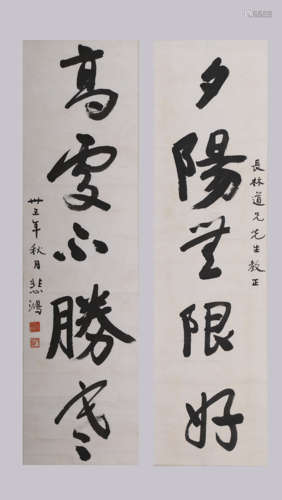 夕陽無限好
長林道兄先生教正
高處不勝寒
卅五年秋月悲鴻